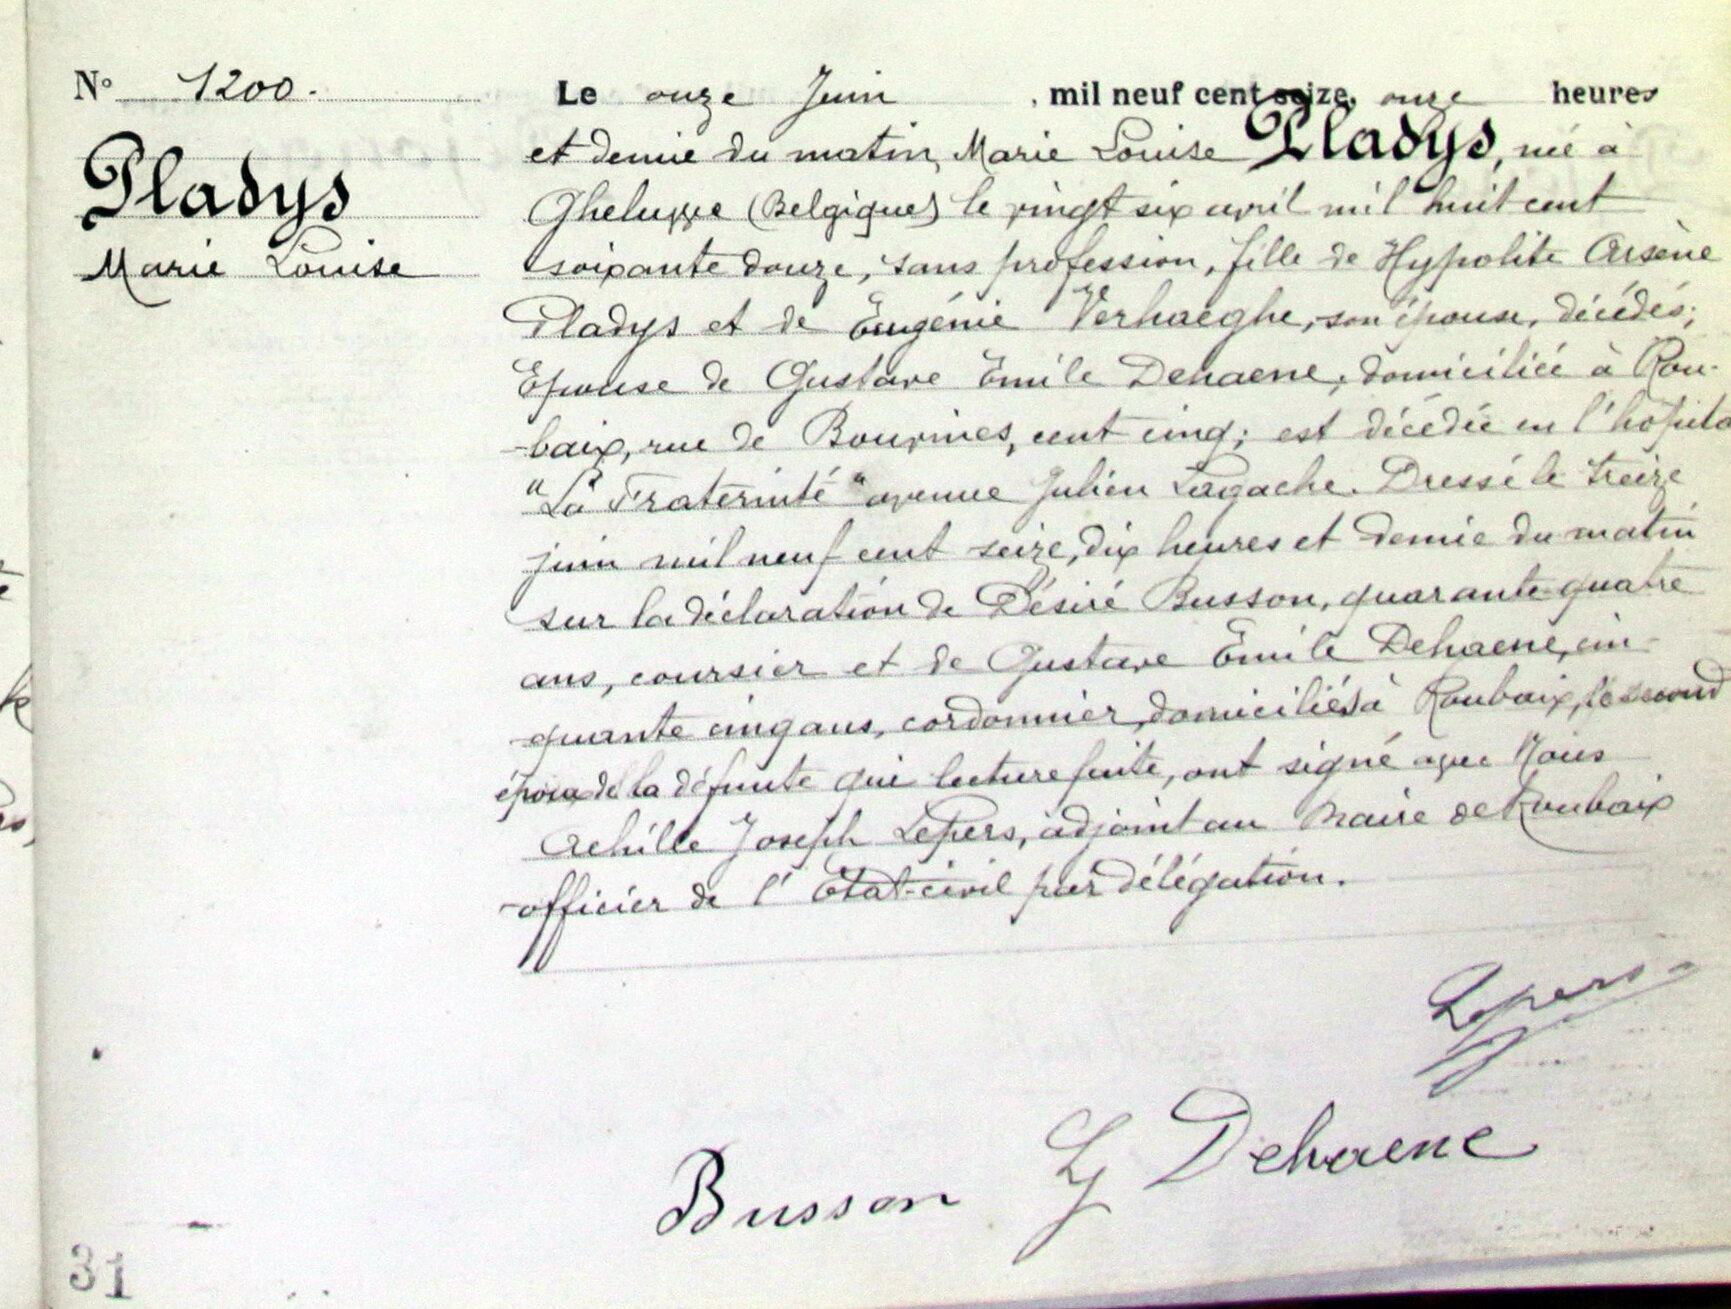 N° 1200.
Pladys
Marie Louise
Le onze Juin, mil neuf cent seize, onze heures
et demie du matin, Marie Louise Pladys, née à
Gheluwe (Belgique) le vingt six avril mil huit cent
soixante douze, sans profession, fille de Hypolite Arsène
Pladys et de Eugénie Verhaeghe, son épouse, décédés;
Epouse de Gustave Emile Dehaene, domiciliée à Rou-
-baix, rue de Bouvines, cent cinq; est décédée en l'hôpita
"La Fraternité" avenue Julien Lagache. Dressé le treize
juin mil neuf cent seize, dix heures et demie du matin
sur la déclaration de Désiré Busson, quarante-quatre
ans, coursier et de Gustave Emile Dehaene, cin-
quante cinq ans, cordonnier, domiciliés à Roubaix, le second
époux de la défunte qui lecture faite, ont signé avec Nous
Achille Joseph Lepers, adjoint au Maire de Roubaix
officier de l'Etat-civil par délégation.
Lepers
Busson Dehaene
31